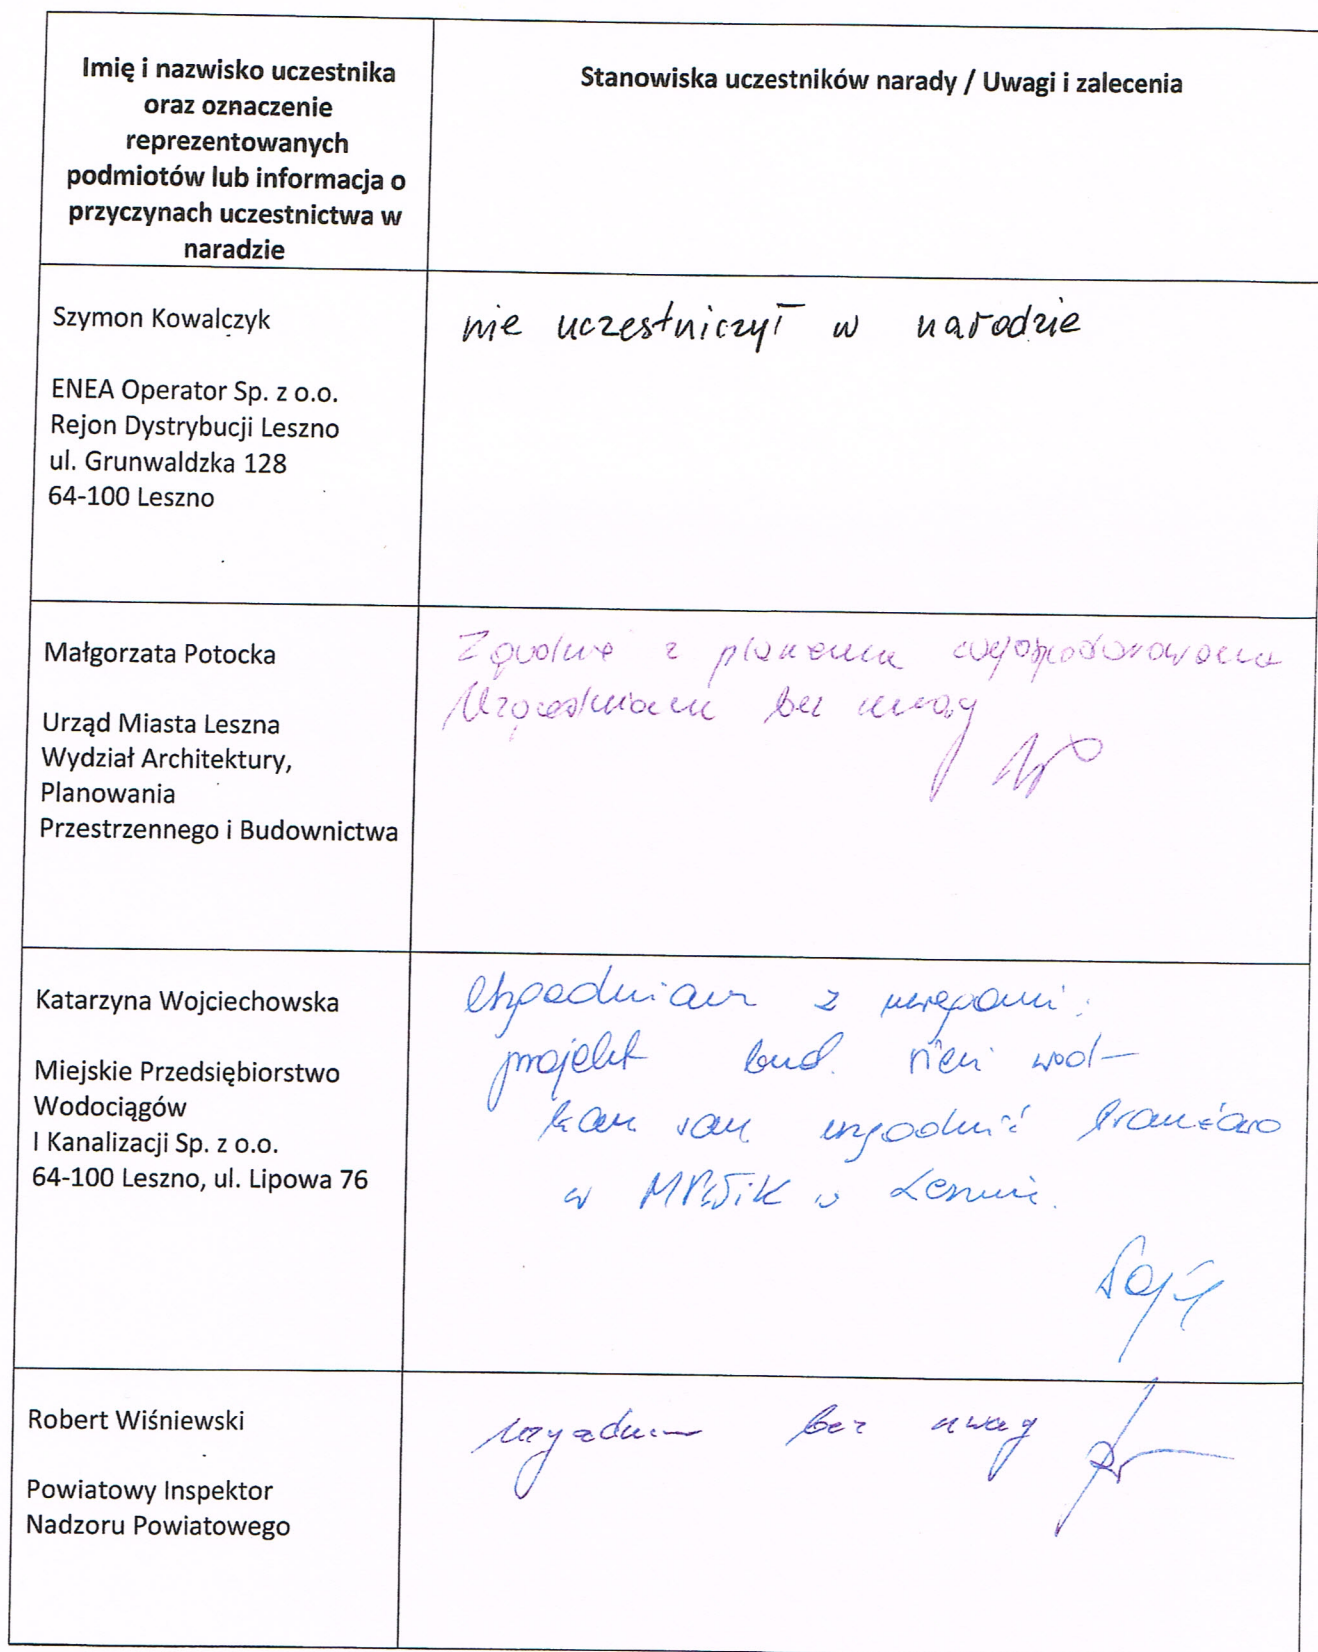 Imię i nazwisko uczestnika
oraz oznaczenie
reprezentowanych
podmiotów lub informacja o
przyczynach uczestnictwa w
naradzie
Stanowiska uczestników narady / Uwagi i zalecenia
Szymon Kowalczyk
ENEA Operator Sp. z o.o.
Rejon Dystrybucji Leszno
ul. Grunwaldzka 128
64-100 Leszno
nie uczestniczył w naradzie
Małgorzata Potocka
Urząd Miasta Leszna
Wydział Architektury,
Planowania
Przestrzennego i Budownictwa
Zgodnie z planem
bez uwag
Katarzyna Wojciechowska
Miejskie Przedsiębiorstwo
Wodociągów
I Kanalizacji Sp. z o.o.
64-100 Leszno, ul. Lipowa 76
Uzgadniam z uwagami:
projekt bud. sieci wod-
kan san uzgodnić branżowo
w MPWiK w Lesznie.
Robert Wiśniewski
Powiatowy Inspektor
Nadzoru Powiatowego
uzgadniam bez uwag